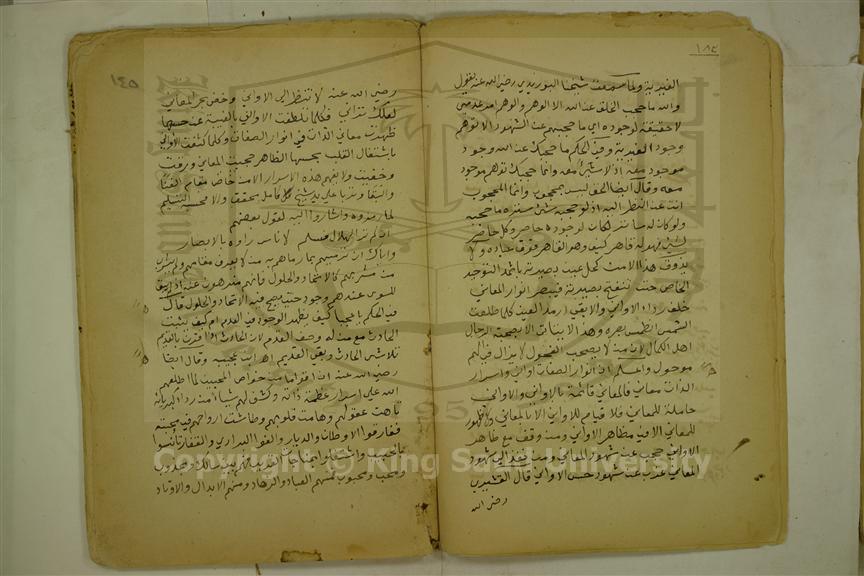 ١٨٢
الغيرية ولما سمعت شيخنا البوزيدي رضي الله عنه يقول
والله ما حجب الخلق عن الله الا الوهم والوهم امر عدمي
لا حقيقة لوجوده اي ما حجبهم عن الشهود الا توهم
وجود الغيرية وفي الحكم ما حجبك عن الله وجود
موجود معه اذ لا شيء معه وانما حجبك توهم موجود
معه وقال ايضا الحق ليس بمحجوب وانما المحجوب
انت عن النظر اليه اذ لو حجبه شيء لستره ما حجبه
ولو كان له ساتر لكان لوجوده حاصر وكل حاصر
لشيء فهو له قاهر كيف وهو القاهر فوق عباده ولا
يذوق هذا الا من كحل عين بصيرته باثمد التوحيد
الخاص حتى تنفتح بصيرته فيبصر انوار المعاني
خلف رداء الاواني والا بقي ارمد العين كلما طلعت
الشمس انطمس بصره وهذا لا ينال الا بصحبة الرجال
اهل الكمال لان من لا يصحب الفحول لا يزال فيالهم
مجهول واعلم ان انوار الصفات اواني واسرار
الذات معاني فالمعاني قائمة بالاواني والاواني
حاملة للمعاني فلا قيام للاواني الا بالمعاني ولا ظهور
للمعاني الا في مظاهر الاواني ومن وقف مع ظاهر
الاواني حجب عن شهود المعاني ومن نفذ الى شهود
المعاني غاب عن شهود حس الاواني قال الششتري
رضي الله
١٤٥
رضي الله عنه لا تنظر الى الاواني وخض بحر المعاني
لعلك تراني فكلما تلطفت الاواني بالغيبة عن حسها
ظهرت معاني الذات في انوار الصفات وكلما كثفت الاواني
باشتغال القلب بحسها الظاهر حجبت المعاني ورقت
وخفيت ولا يفهم هذه الاسرار الا من خاض مقام الفنا
والبقا وتربا على يد شيخ كامل محقق والا فحسبه التسليم
لما رمزوه واشاروا اليه لقول بعضهم
ان لم تر الهلال فسلم لاناس راوه بالابصار
واياك ان ترميهم بما رماهم به من لا يعرف مقامهم ولم يشرب
من مشربهم كالاتحاد والحلول فانهم منزهون عنه اذ
السوى عندهم وجود حتى يصح فيه الاتحاد والحلول قال
في الحكم يا عجبا كيف يظهر الوجود في العدم ام كيف يثبت
الحادث مع من له وصف القدم لان الحادث اذا اقترن بالقديم
تلاشى الحادث وبقي القديم وقال ايضا
رضي الله عنه ان اقواما من خواص المحبين لما اطلعهم
الله على اسرار عظمة ذاته وكشف لهم شيا من رداء كبريائه
تاهت عقولهم وهامت قلوبهم وطاشت ارواحهم في محبته
ففارقوا الاوطان والديار والفوا البراري والقفار تأنسوا
بالحبيب واشتغلوا بين سالك ومجذوب
ومحب ومحبوب فمنهم العباد والزهاد ومنهم الابدال والاوتاد
Copyright © King Saud University